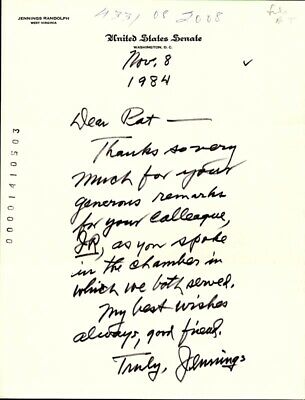 JENNINGS RANDOLPH
WEST VIRGINIA
United States Senate
WASHINGTON, D.C.
Nov. 8
1984
Dear Pat —
Thanks so very
much for your
generous remarks
for your colleague,
JR, as you spoke
in the chamber in
which we both served.
My best wishes
always, good friend.
Truly, Jennings
00001410503